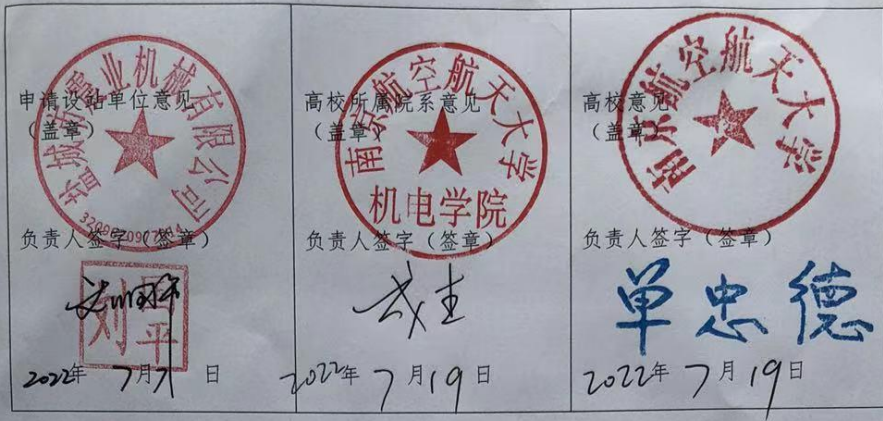 申请设站单位意见
（盖章）
盐城市雷业机械有限公司
负责人签字（签章）
刘
平
2022年 7月7日
高校所属院系意见
（盖章）
南京航空航天大学
机电学院
负责人签字（签章）
2022年 7月19日
高校意见
（盖章）
南京航空航天大学
负责人签字（签章）
单忠德
2022年 7月19日